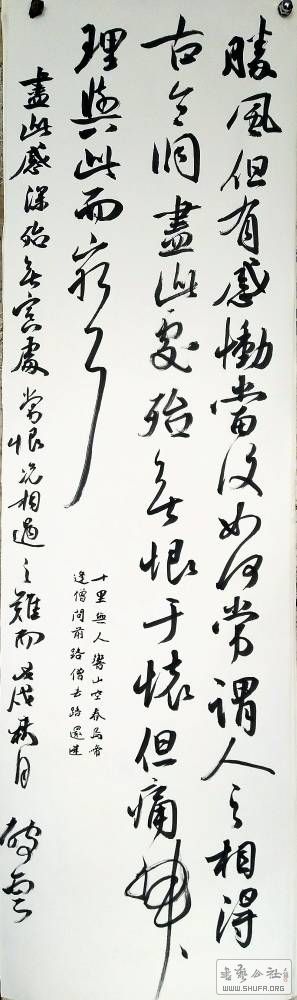 勝風但有感慟當復如何常謂人之相得
古今洞盡此處殆無恨于懷但痛神
理與此而窮耳
十里無人響山空春鳥啼
逢僧問前路僧去路還迷
盡此感深殆無冥處常恨況相遇之難而 戊戌秋月
WWW.SHUFA.ORG